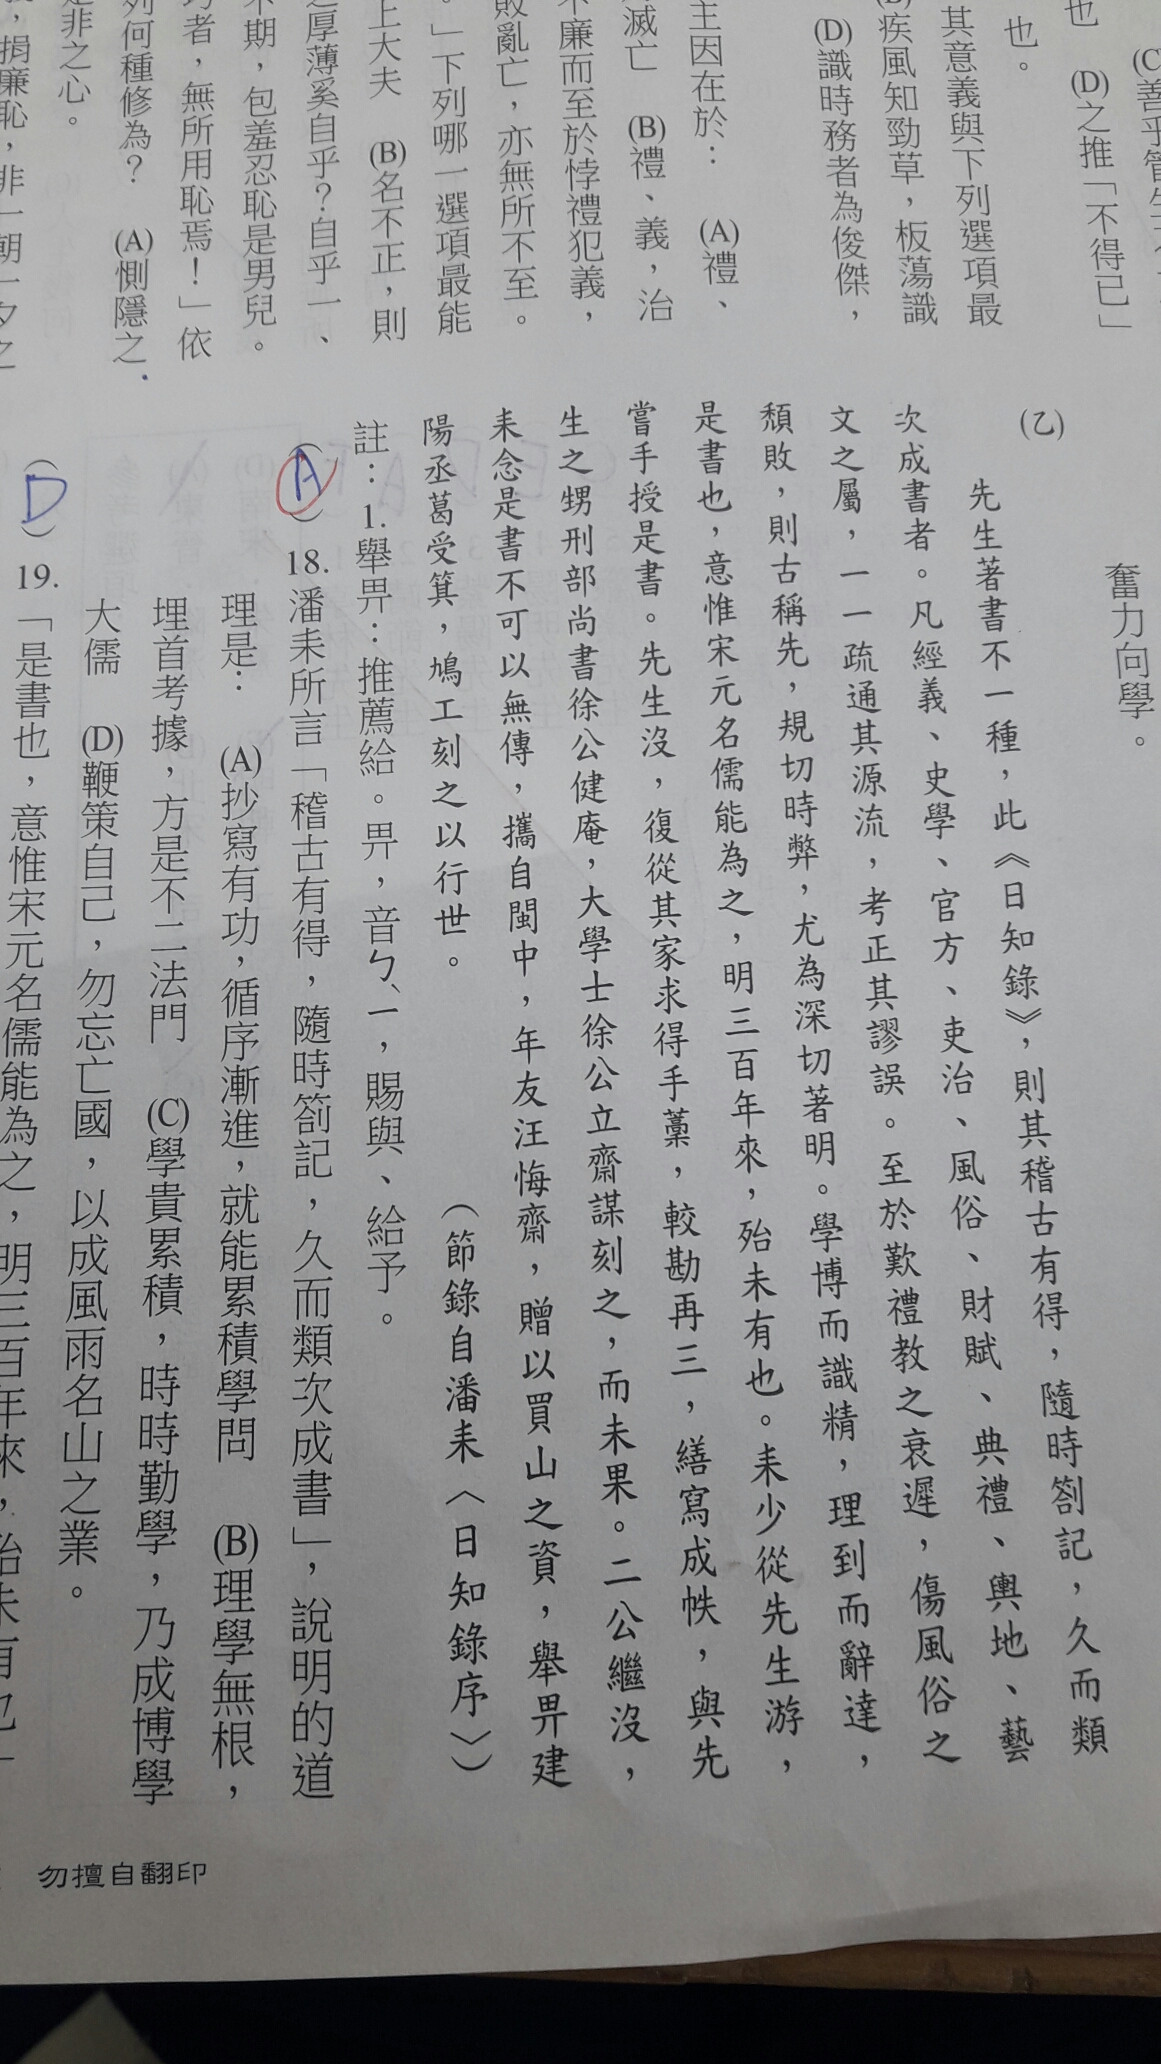 (C)善乎管生
也 (D)之推「不得已」
也。
其意義與下列選項最
疾風知勁草，板蕩識
(D)識時務者為俊傑，
主因在於： (A)禮、
滅亡 (B)禮、義，治
不廉而至於悖禮犯義，
敗亂亡，亦無所不至。
。」下列哪一選項最能
上大夫 (B)名不正，則
之厚薄奚自乎？自乎一、
不期，包羞忍恥是男兒。
巧者，無所用恥焉！」依
列何種修為？ (A)惻隱之
是非之心。
，捐廉恥，非一朝一夕之
奮力向學。
(乙)
先生著書不一種，此《日知錄》，則其稽古有得，隨時劄記，久而類
次成書者。凡經義、史學、官方、吏治、風俗、財賦、典禮、輿地、藝
文之屬，一一疏通其源流，考正其謬誤。至於歎禮教之衰遲，傷風俗之
頹敗，則古稱先，規切時弊，尤為深切著明。學博而識精，理到而辭達，
是書也，意惟宋元名儒能為之，明三百年來，殆未有也。耒少從先生游，
嘗手授是書。先生沒，復從其家求得手藁，較勘再三，繕寫成帙，與先
生之甥刑部尚書徐公健庵，大學士徐公立齋謀刻之，而未果。二公繼沒，
耒念是書不可以無傳，攜自閩中，年友汪悔齋，贈以買山之資，舉畀建
陽丞葛受箕，鳩工刻之以行世。 （節錄自潘耒〈日知錄序〉）
註：1.舉畀：推薦給。畀，音ㄅㄧˋ，賜與、給予。
（A）18.潘耒所言「稽古有得，隨時劄記，久而類次成書」，說明的道
理是： (A)抄寫有功，循序漸進，就能累積學問 (B)理學無根，
埋首考據，方是不二法門 (C)學貴累積，時時勤學，乃成博學
大儒 (D)鞭策自己，勿忘亡國，以成風雨名山之業。
（D）19.「是書也，意惟宋元名儒能為之，明三百年來，殆未有也」
勿擅自翻印